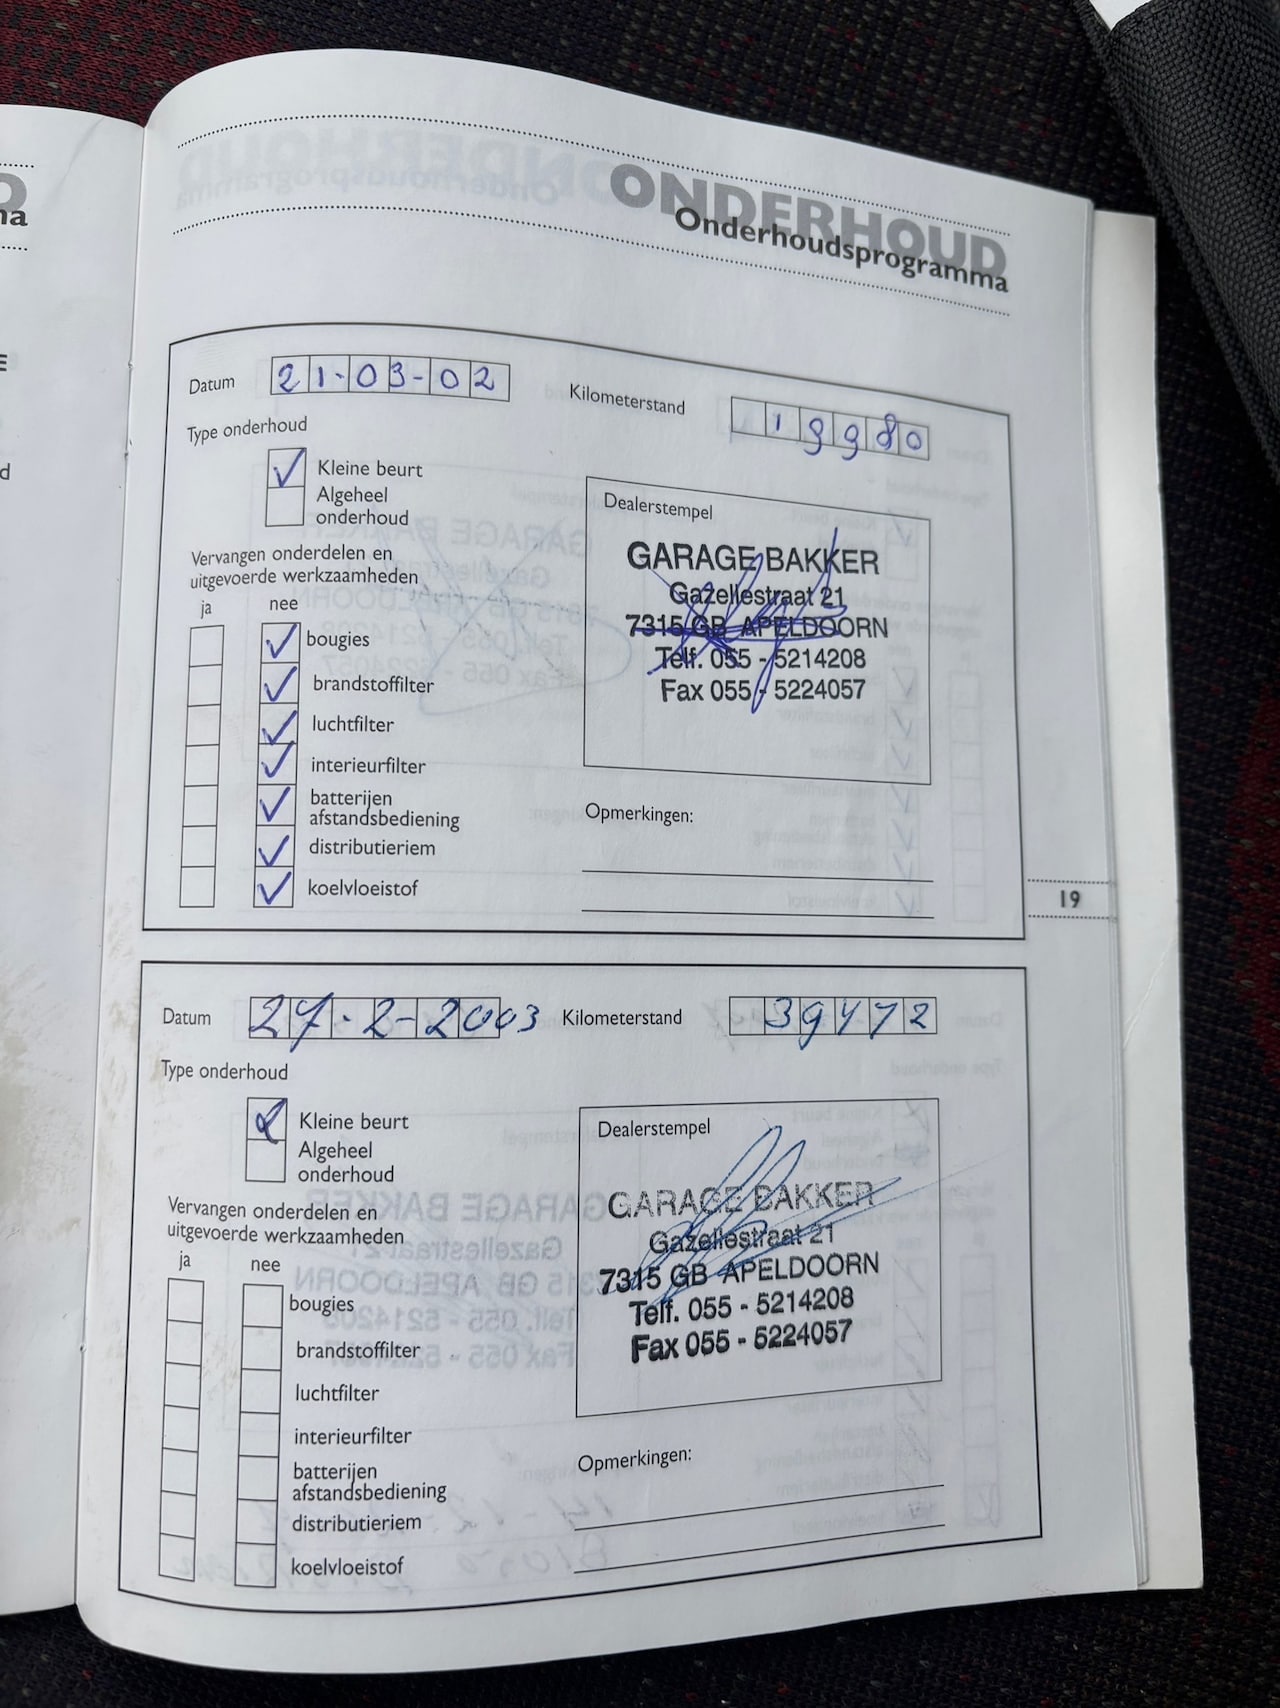 ONDERHOUD
Onderhoudsprogramma
Datum 21-03-02 Kilometerstand 19980
Type onderhoud
Kleine beurt
Algeheel
onderhoud
Dealerstempel
GARAGE BAKKER
Gazellestraat 21
7315 GB APELDOORN
Telf. 055 - 5214208
Fax 055 - 5224057
Vervangen onderdelen en
uitgevoerde werkzaamheden
ja nee
bougies
brandstoffilter
luchtfilter
interieurfilter
batterijen
afstandsbediening
distributieriem
koelvloeistof
Opmerkingen:
19
Datum 27-2-2003 Kilometerstand 39472
Type onderhoud
Kleine beurt
Algeheel
onderhoud
Dealerstempel
GARAGE BAKKER
Gazellestraat 21
7315 GB APELDOORN
Telf. 055 - 5214208
Fax 055 - 5224057
Vervangen onderdelen en
uitgevoerde werkzaamheden
ja nee
bougies
brandstoffilter
luchtfilter
interieurfilter
batterijen
afstandsbediening
distributieriem
koelvloeistof
Opmerkingen: